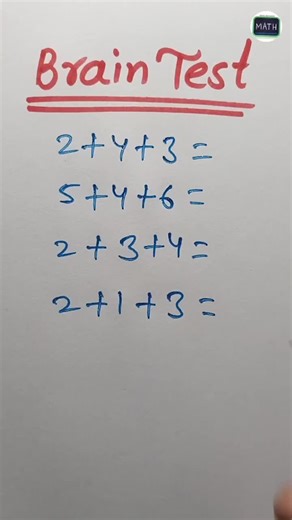 MATH
Brain Test
2+4+3=
5+4+6=
2+3+4=
2+1+3=